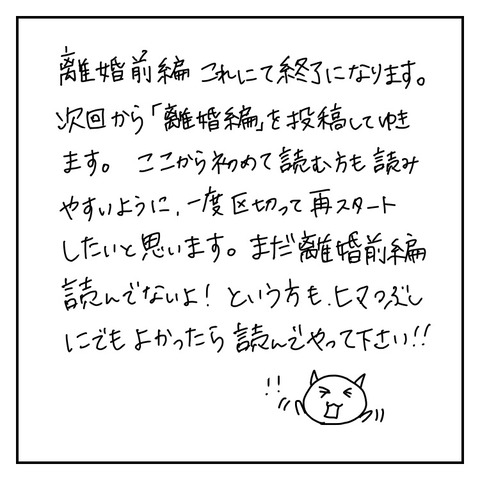 離婚前編 これにて終了になります。
次回から「離婚編」を投稿してゆき
ます。 ここから初めて読む方も読み
やすいように、一度区切って再スタート
したいと思います。まだ離婚前編
読んでないよ！ という方も、ヒマつぶし
にでもよかったら読んでやって下さい!!
!!